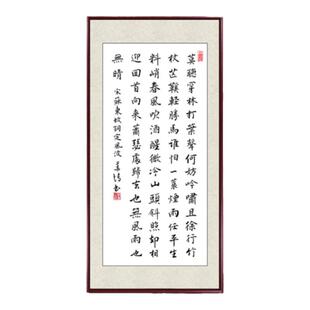 莫聽穿林打葉聲何妨吟嘯且徐行竹
杖芒鞵輕勝馬誰怕一蓑煙雨任平生
料峭春風吹酒醒微冷山頭斜照却相
迎回首向來蕭瑟處歸去也無風雨也
無晴
宋蘇東坡詞定風波
书